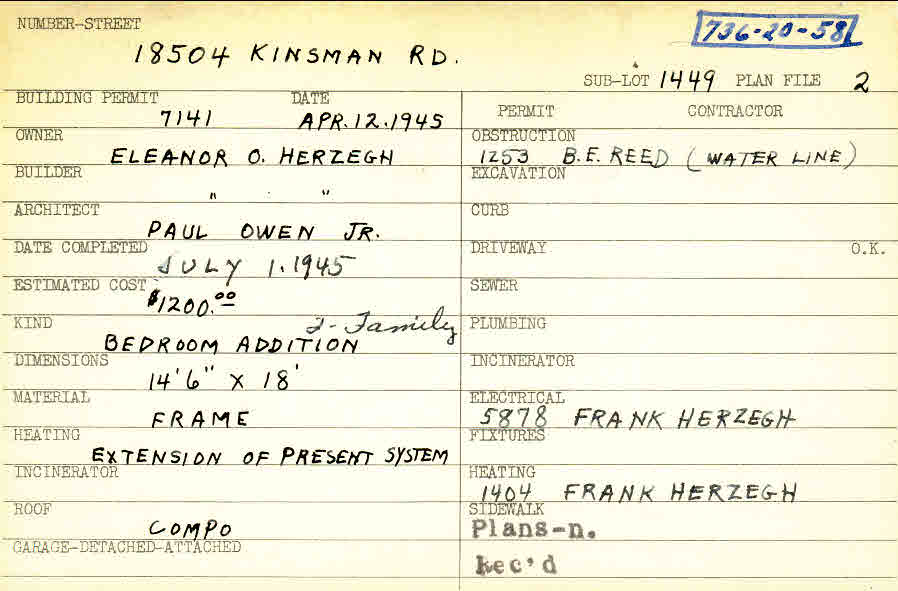 NUMBER-STREET
736-20-58
18504 KINSMAN RD.
SUB-LOT 1449 PLAN FILE 2
BUILDING PERMIT DATE
7141 APR. 12. 1945
OWNER
ELEANOR O. HERZEGH
BUILDER
" "
ARCHITECT
PAUL OWEN JR.
DATE COMPLETED
JULY 1. 1945
ESTIMATED COST
$1200.00
KIND
2-Family
BEDROOM ADDITION
DIMENSIONS
14'6" X 18'
MATERIAL
FRAME
HEATING
EXTENSION OF PRESENT SYSTEM
INCINERATOR
ROOF
COMPO
GARAGE-DETACHED-ATTACHED
PERMIT CONTRACTOR
OBSTRUCTION
1253 B.E. REED (WATER LINE)
EXCAVATION
CURB
DRIVEWAY O.K.
SEWER
PLUMBING
INCINERATOR
ELECTRICAL
5878 FRANK HERZEGH
FIXTURES
HEATING
1404 FRANK HERZEGH
SIDEWALK
Plans-n.
Rec'd